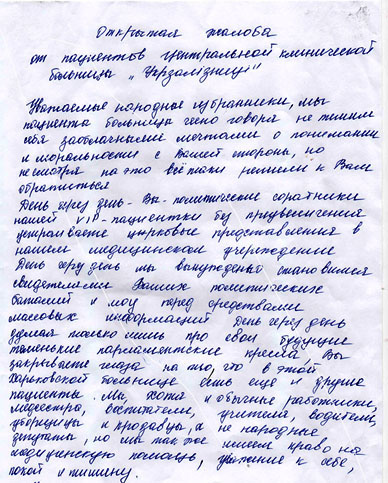 Открытая жалоба
от пациентов Центральной клинической
больницы „Укрзалізниці"
Уважаемые народные избранники, мы
пациента больницы чесно говоря не тешим
себя заоблачными мечтами о понимании
и моральности с Вашей стороны, но
несмотря на это всё таки решили к Вам
обратиться
День через день - Вы - политические соратники
нашей VIP-пациентки без преувеличения
устраиваете цирковые представления в
нашем медицинском учреждение
День через день мы вынужденно становимся
свидетелями Ваших политических
баталий и шоу перед средствами
массовых информаций День через день
думая только лишь про свои будущие
тёпленькие парламентские кресла Вы
закрываете глаза на то, что в этой
Харьковской больнице есть еще и другие
пациенты. Мы, хотя и обычные работники,
медсестра, воспитатели, учителя, водители,
уборщицы и продавцы, а не народные
депутаты, но мы так же имеем право на
медицинскую помощь, уважение к себе,
покой и тишину.